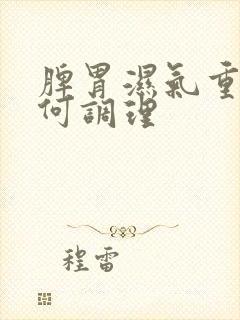 脾胃濕氣重
何調理
程雷